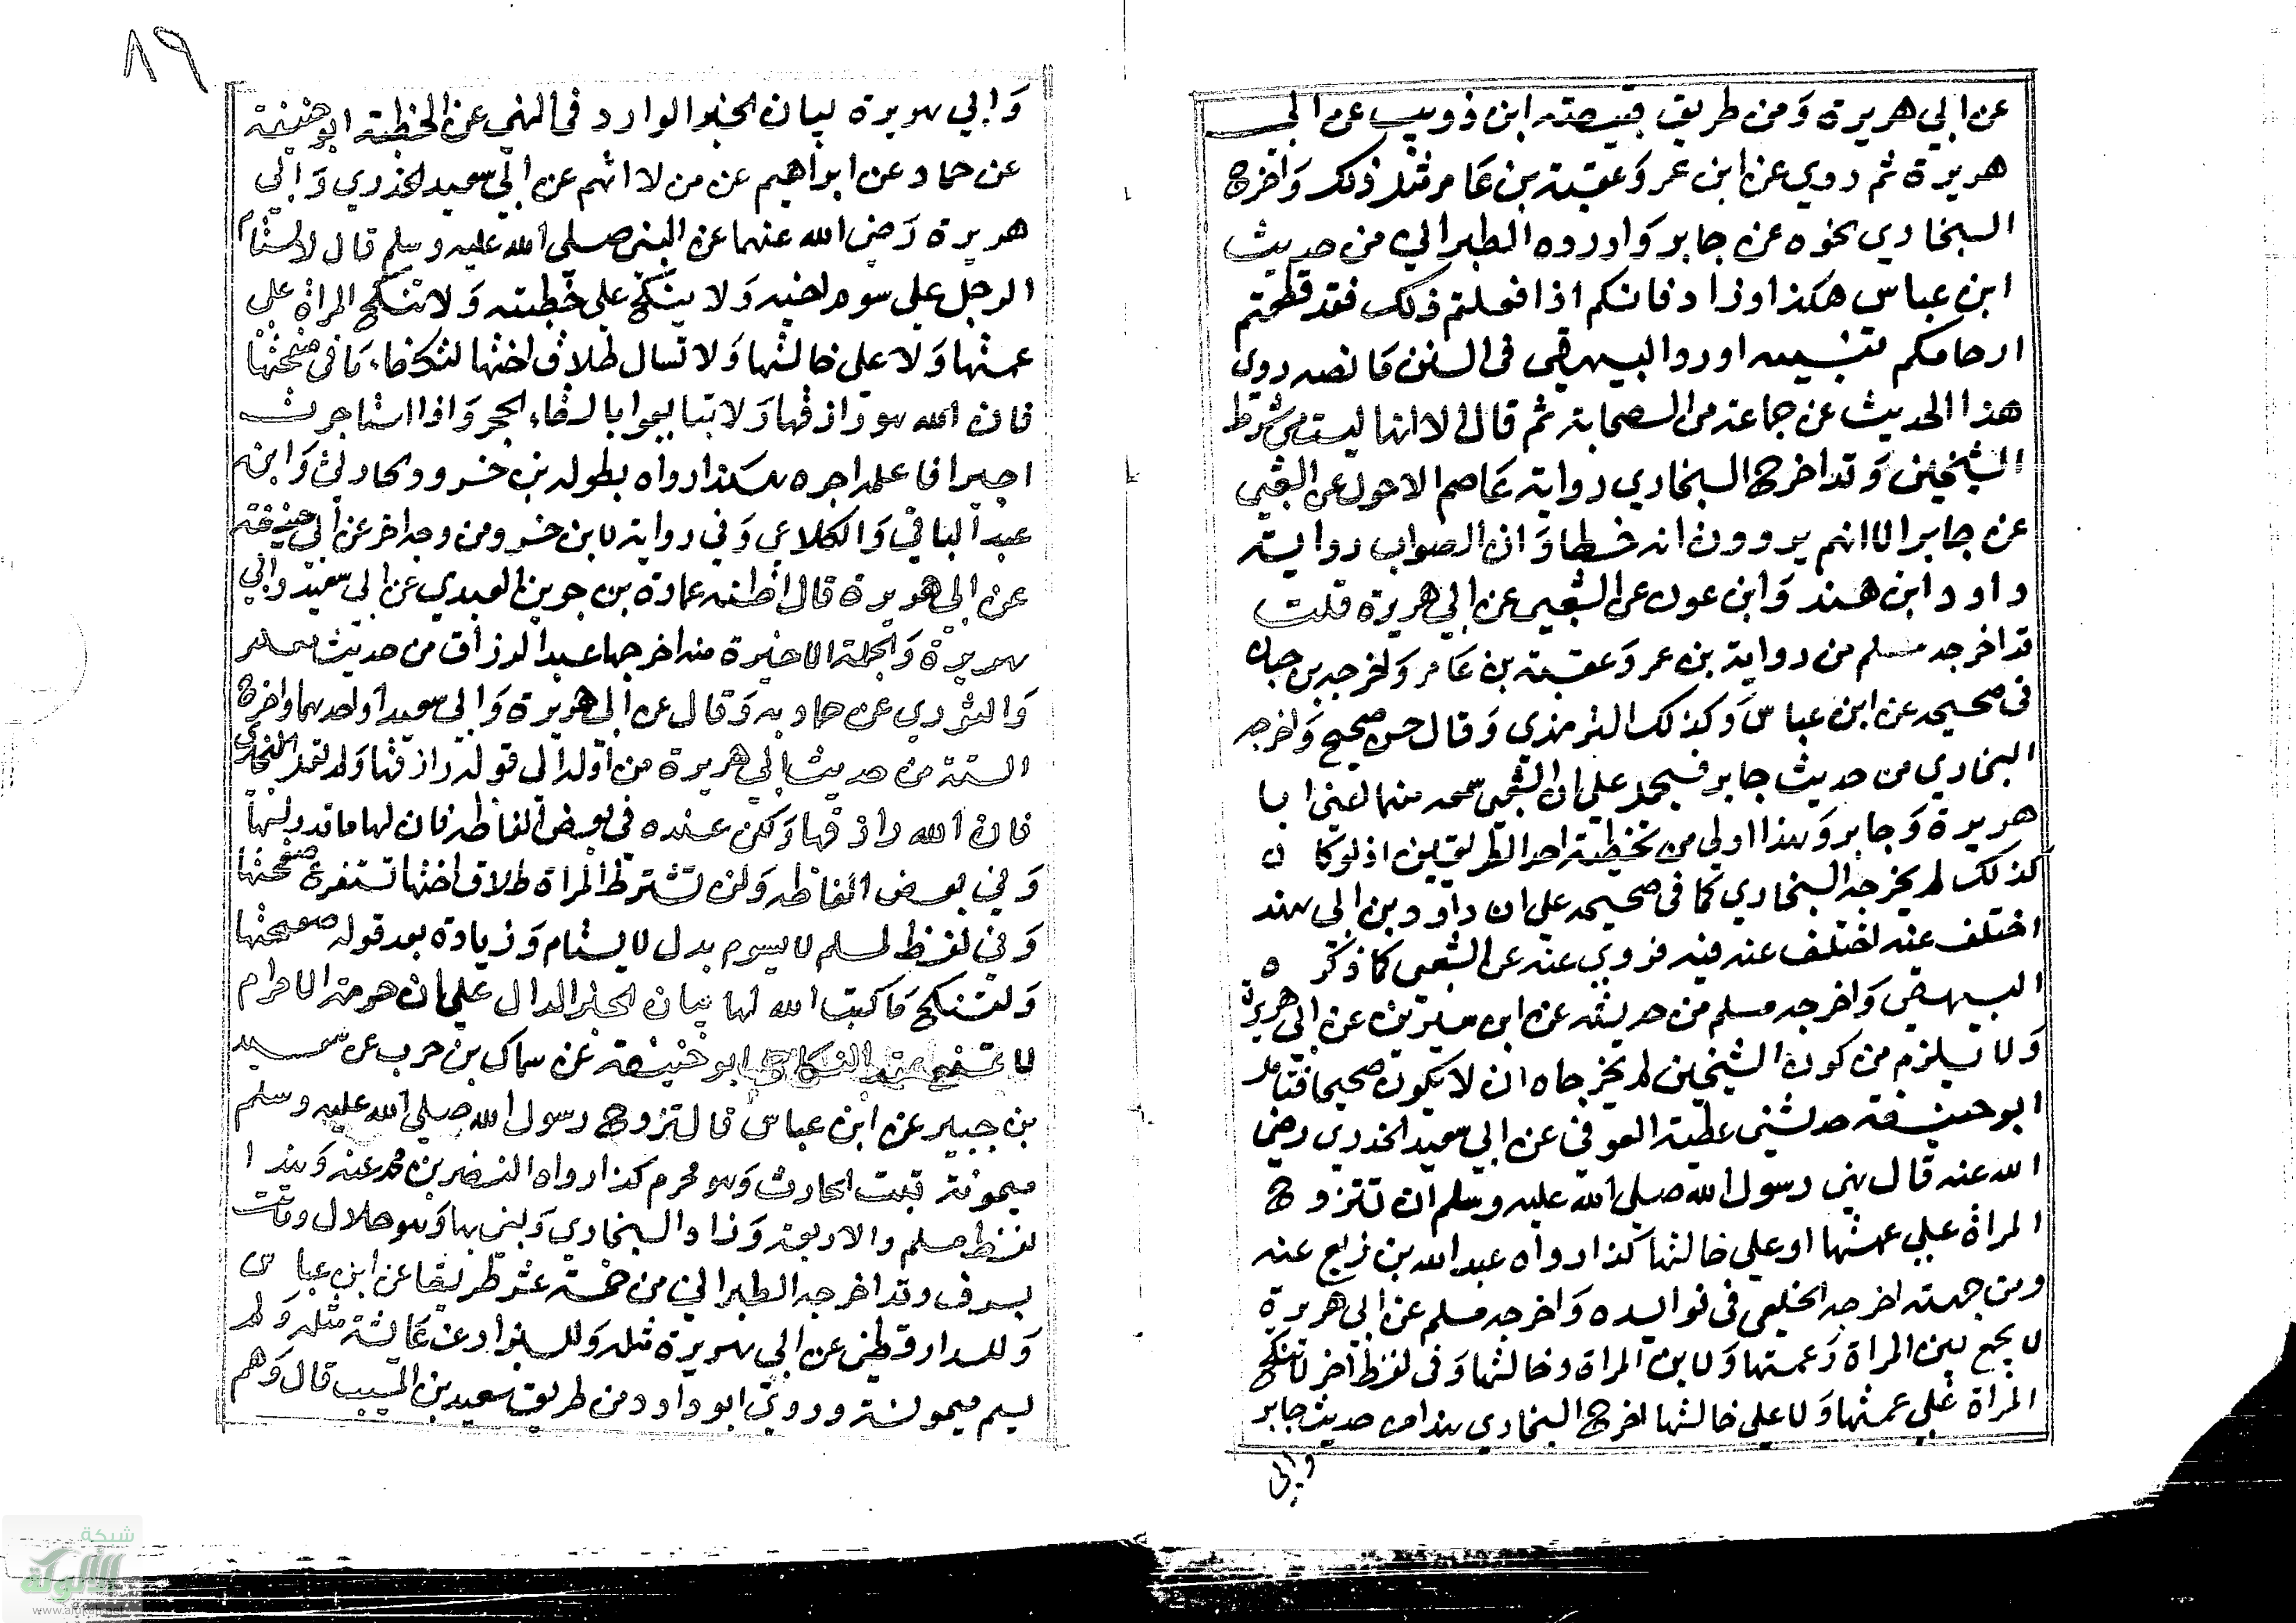 عن ابي هريرة وَمن طريق قبيصته ابن ذويب عن ابي
هريرة ثم روي عن ابن عمر وَعقبة بن عَامر مثل ذلك وَاخرج
البخاري نحوه عن جابر وَاورده الطبراني من حديث
ابن عباس هكذا وزاد فانكم اذا فعلتم ذلك فقد قطعتم
ارحامكم تنبيه اورد البيهقي في السنن مَا نصه روى
هذا الحديث عن جماعة من الصحابة ثم قال الا انها ليست من شرط
الشيخين وَقد اخرج البخاري رواية عَاصم الاحول عن الشعبي
عن جابر الا انهم يروون انه خطا وَان الصواب رواية
داود ابن هند وَابن عون عن الشعبي عن ابي هريرة قلت
قد اخرجه مسلم من رواية بن عمر وَعقبة بن عَامر وَاخرجه بن حبان
في صحيحه عن ابن عباس وَكذلك الترمذي وَقال حسن صحيح وَاخرجه
البخاري من حديث جابر فيحمل علي ان الشعبي سمعه منهما اعني ابا
هريرة وَجابر وَهذا اولي من تخطية احد الطريقين اذ لو كان
كذلك لم يخرجه البخاري كما في صحيحه علي ان داوود بن ابي هند
اختلف عنه اختلف عنه فيه فروي عنه عن الشعبي كما ذكره
البيهقي وَاخرجه مسلم من حديثه عن ابن سيرين عن ابي هريرة
وَلا يلزم من كون الشيخين لم يخرجاه ان لا يكون صحيحا فتامل
ابو حنيفة حدثني عطية العوفي عن ابي سعيد الخدري رضي
الله عنه قال نهي رسول الله صلي الله عليه وسلم ان تتزوج
المراة علي عمتها او علي خالتها كذا رواه عبد الله بن بزيع عنه
ومن جهته اخرجه الخلعي في فوايده وَاخرجه مسلم عن ابي هريرة
لا يجمع بين المراة وَعمتها وَلا بين المراة وخالتها وَفي لفظ اخر لا تنكح
المراة علي عمتها وَلا علي خالتها اخرج البخاري هذا من حديث جابر
وابي
٨٩
وَابي هريرة بيان الخبر الوارد في النهي عن الخطبة ابو حنيفة
عن حماد عن ابراهيم عن من لا اتهم عن ابي سعيد الخدري وَابي
هريرة رَضي الله عنهما عن النبي صلي الله عليه وسلم قال لا يستام
الرجل علي سوم اخيه وَلا ينكح علي خطبته وَلا تنكح المراة علي
عمتها وَلا علي خالتها وَلا تسال طلاق اختها لتكفاء مَا في صحفتها
فان الله هو رَازقها وَلا تبايعوا بالقاء الحجر وَاذا استاجرت
اجيرا فاعلمه اجره هكذا رواه بطوله بن خسرو والحارثي وَابن
عبد الباقي وَالكلاعي وَفي رواية لابن خسرو من وجه اخر عن ابي حنيفة
عن ابي هريرة قال اظنه عمارة بن جوين العبدي عن ابي سعيد وابي
هريرة وَالجملة الاخيرة منه اخرجها عبد الرزاق من حديث معمر
وَالثوري عن حماد به وَقال عن ابي هريرة وَابي سعيد او احدهما وَاخرج
الستة من حديث ابي هريرة من اوله الي قوله رازقها وَلم يقل البخاري
فان الله رازقها وَلكن عنده في بعض الفاظه فان لها ما قدر لها
وَفي بعض الفاظه وَلن تشترط المراة طلاق اختها تستفرغ صحفتها
وَفي لفظ لمسلم لا يسوم بدل لا يستام وَزيادة بعد قوله صحفتها
وَلتنكح مَا كتب الله لها بيان الخبر الدال علي ان حرمة الاحرام
لا تمنع عقد النكاح ابو حنيفة عن سماك بن حرب عن سعيد
بن جبير عن ابن عباس قال تزوج رسول الله صلي الله عليه وسلم
ميمونة بنت الحارث وَهو محرم كذا رواه النضر بن محمد عنه وَهذا
لفظ مسلم والاربعة وَزاد البخاري وَبني بها وَهو حلال وماتت
بسرف وقد اخرجه الطبراني من خمسة عشر طريقا عن ابن عباس
وَللدارقطني عن ابي هريرة مثله وَللبزار عن عَايشة مثله وَلم
يسم ميمونة وروي ابو داود من طريق سعيد بن المسيب قال وَهم
شبكة
الألوكة
www.alukah.net